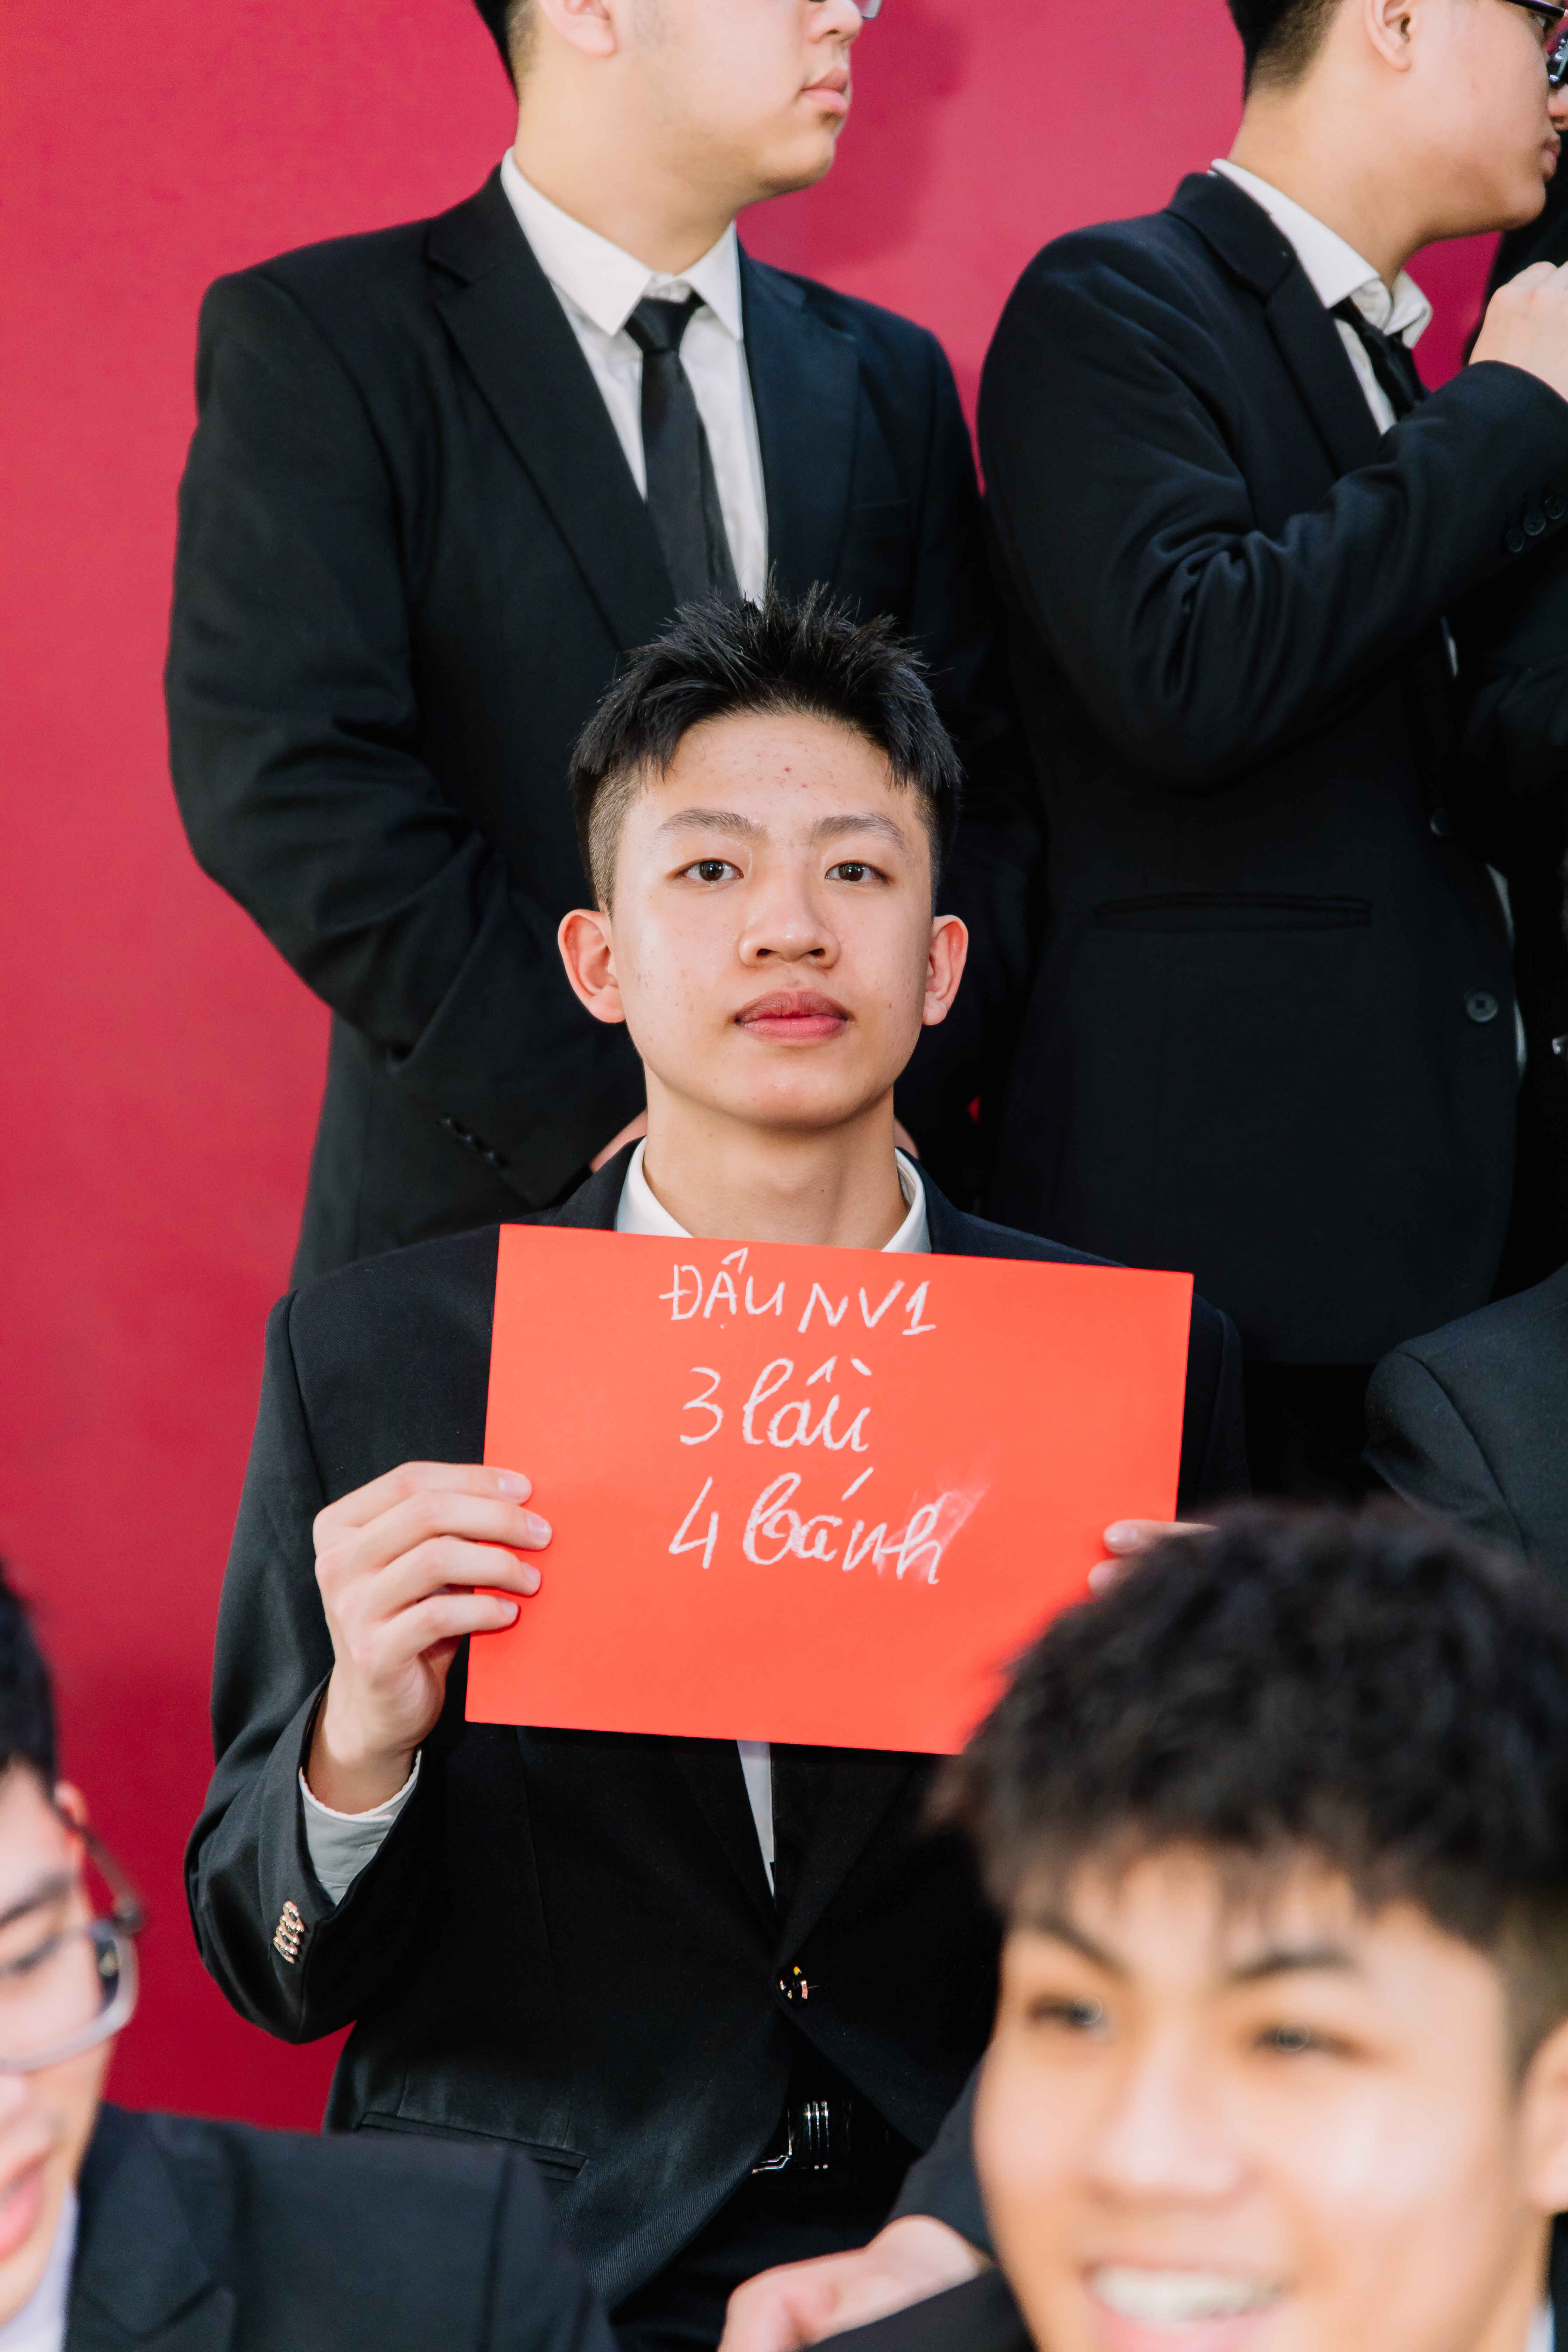 ĐẬU NV1
3 lầu
4 bánh